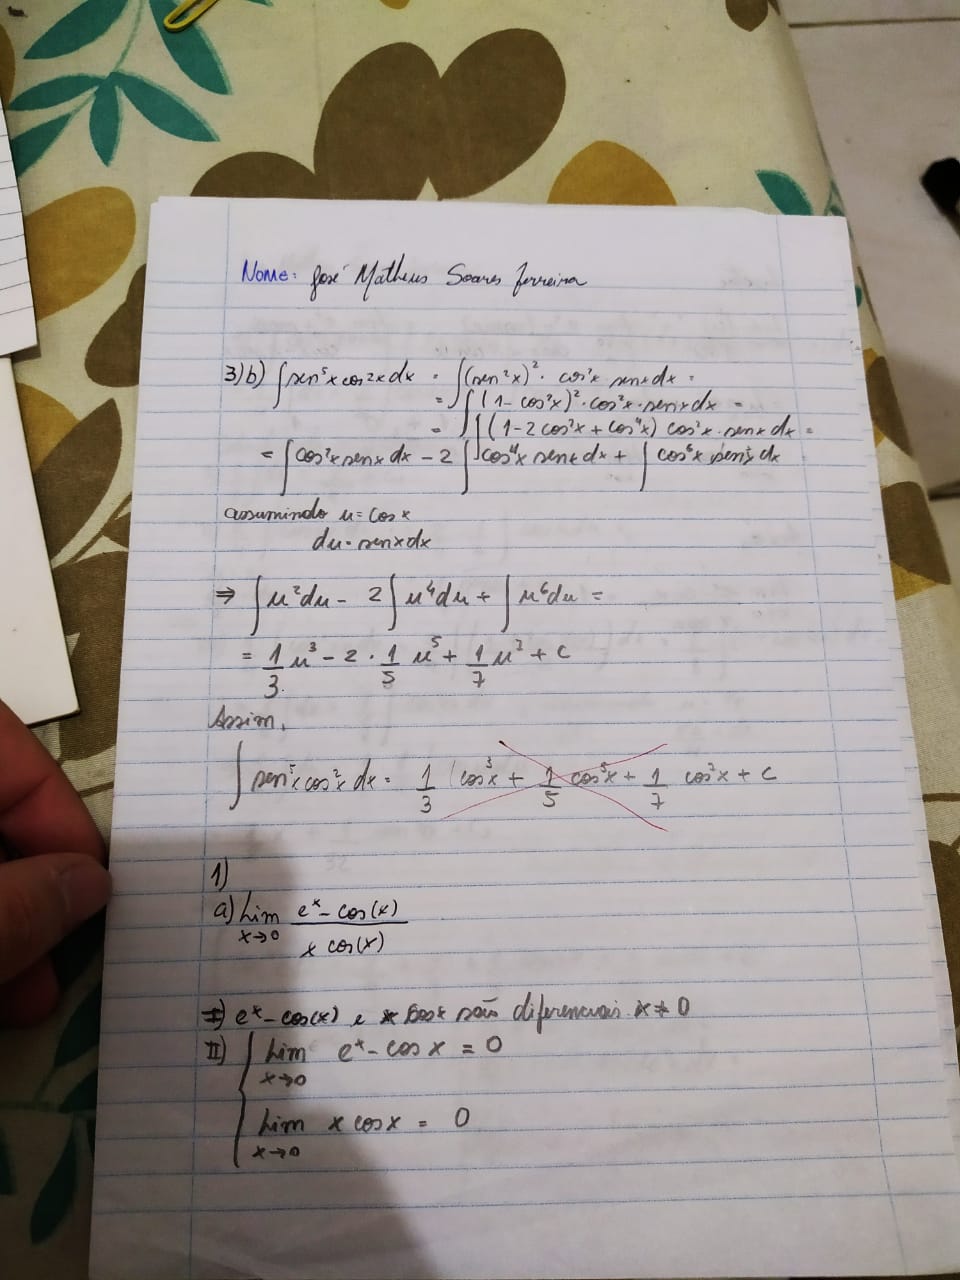 Nome: José Matheus Soares Ferreira
3)b) ∫sen⁵x cos²x dx = ∫(sen²x)² · cos²x senx dx =
= ∫(1 - cos²x)² · cos²x · senx dx =
= ∫(1 - 2cos²x + cos⁴x) cos²x · senx dx =
= ∫cos²x senx dx - 2∫cos⁴x senx dx + ∫cos⁶x senx dx
assumindo u = cosx
du = senx dx
⇒ ∫u²du - 2∫u⁴du + ∫u⁶du =
= 1/3 u³ - 2 · 1/5 u⁵ + 1/7 u⁷ + c
Assim,
∫sen⁵x cos²x dx = 1/3 cos³x + 1/5 cos⁵x + 1/7 cos⁷x + c
1)
a) Lim x→0 eˣ - cos(x) / x cos(x)
I) eˣ - cos(x) e x cosx são diferenciais x ≠ 0
II) { Lim x→0 eˣ - cos x = 0
Lim x→0 x cosx = 0